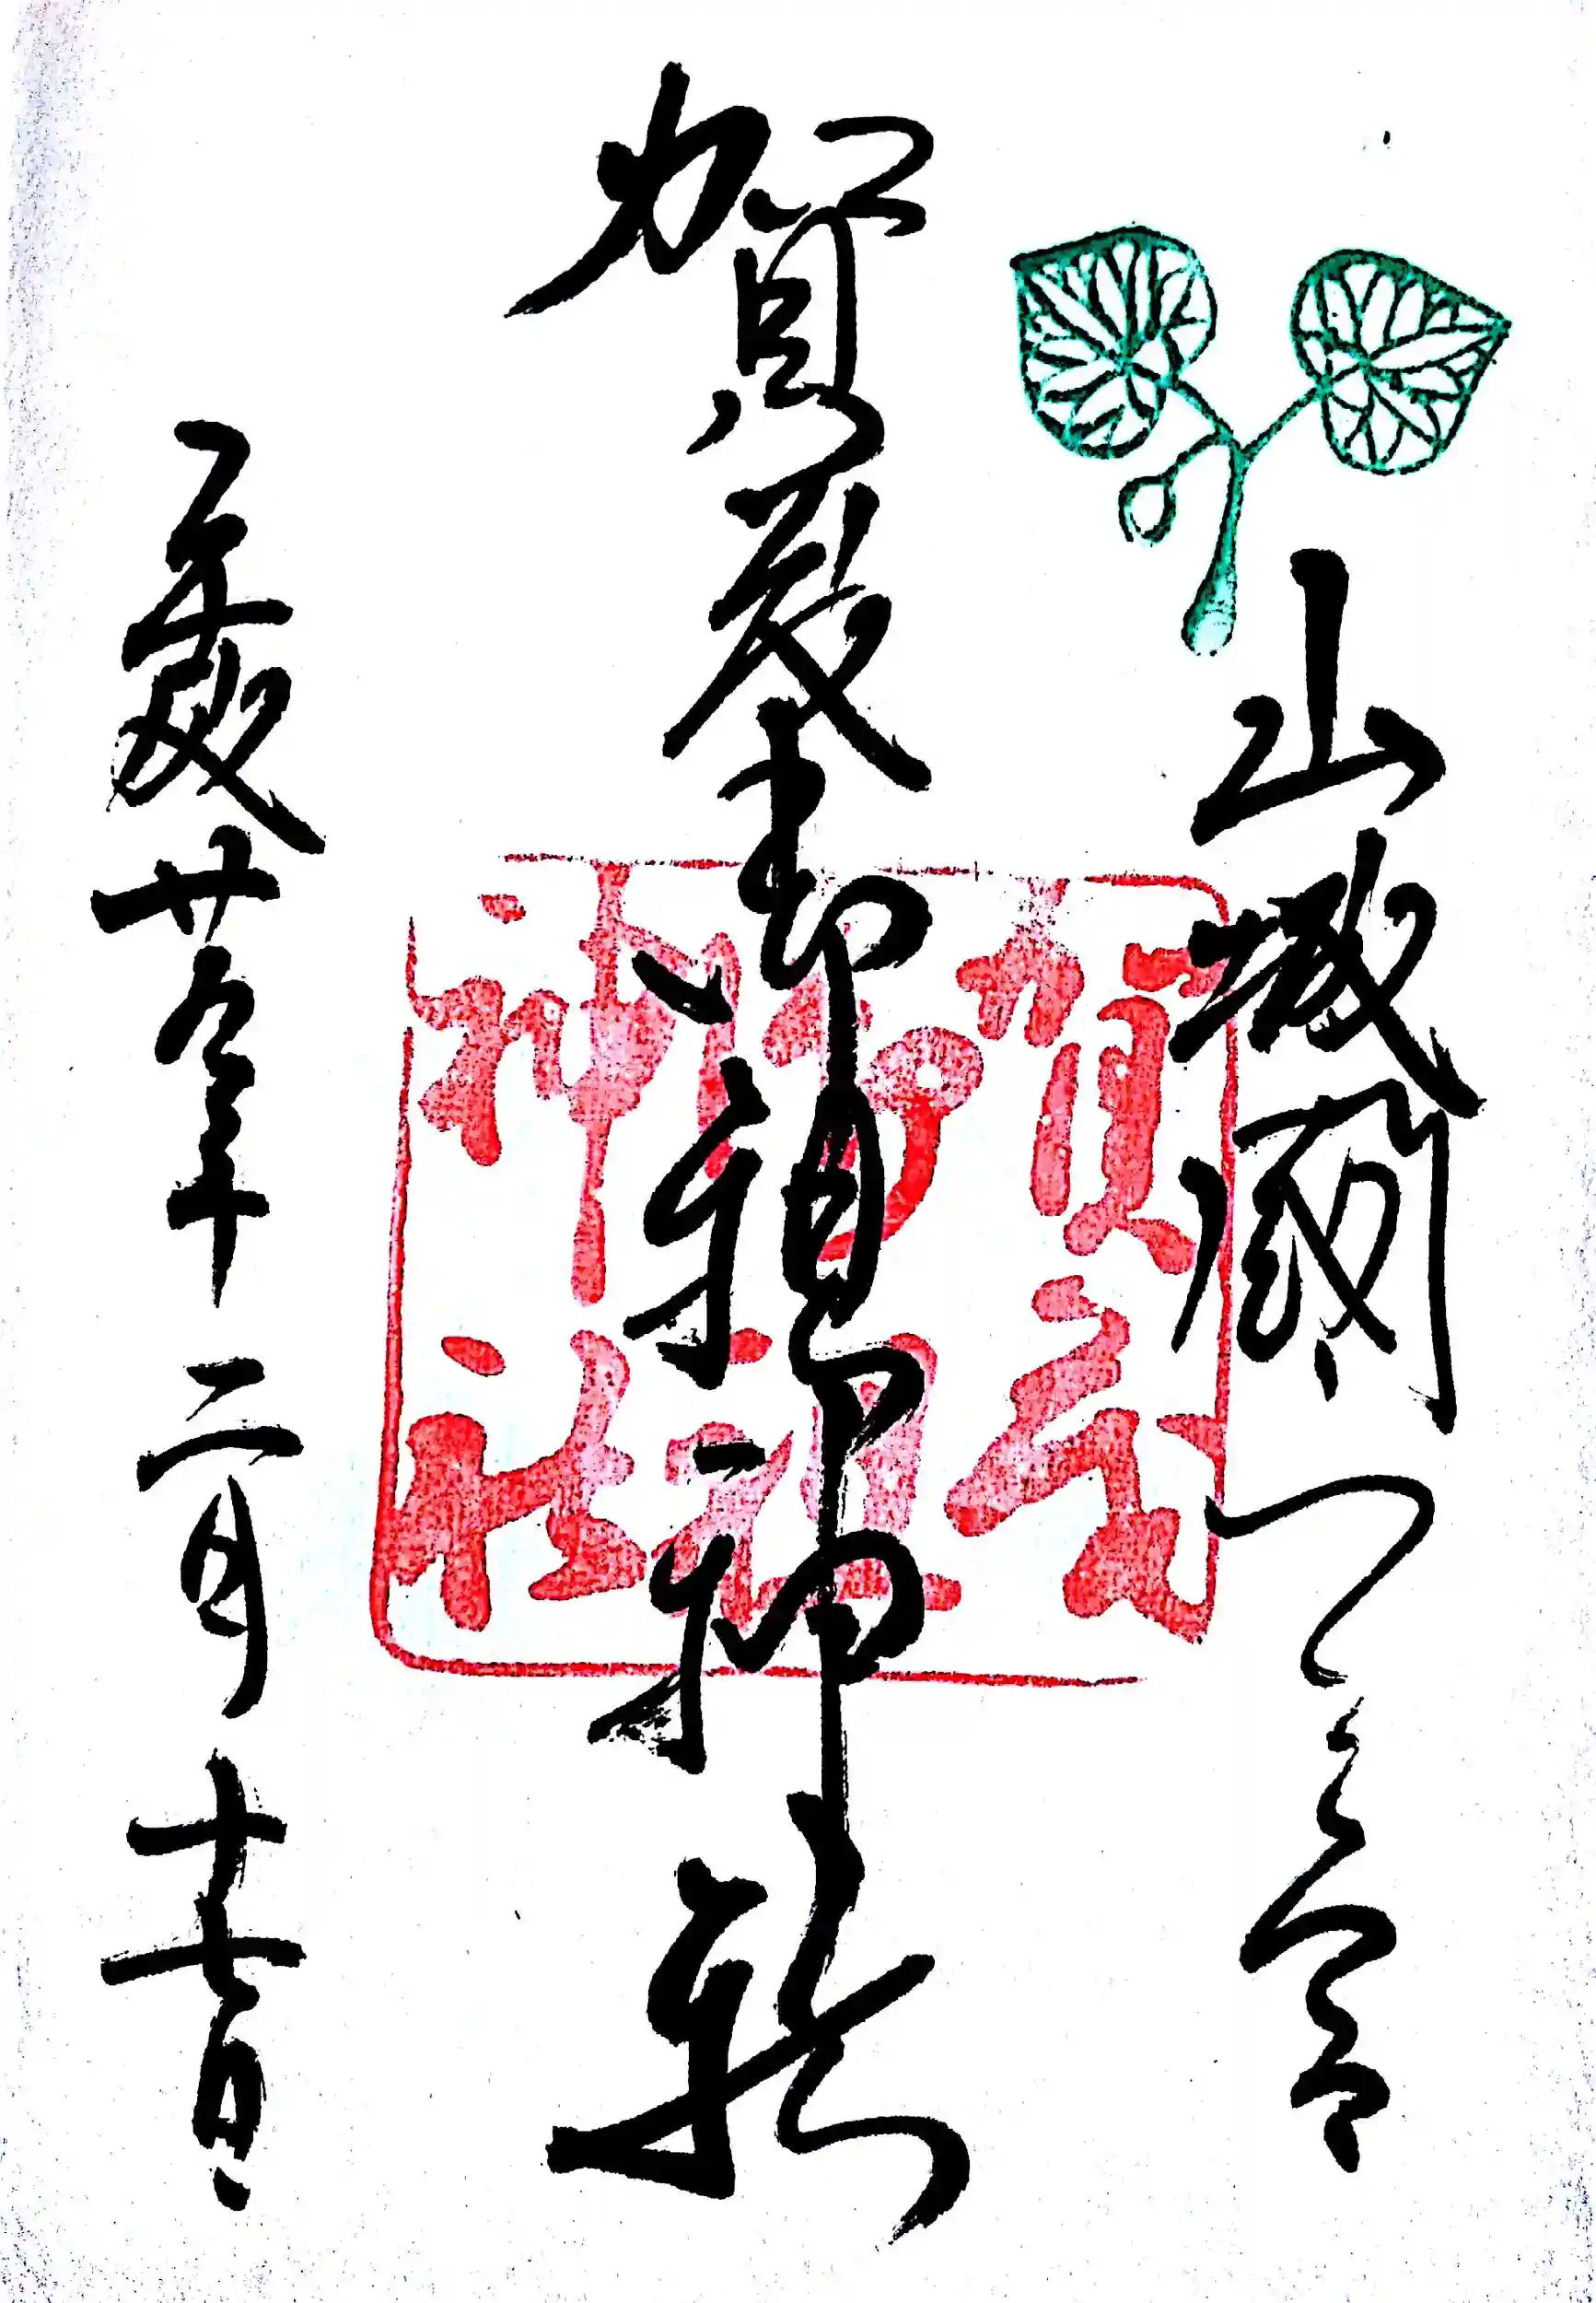 山城國一之宮
賀茂御祖神社
平成廿五年二月十七日
賀茂
御祖
神社